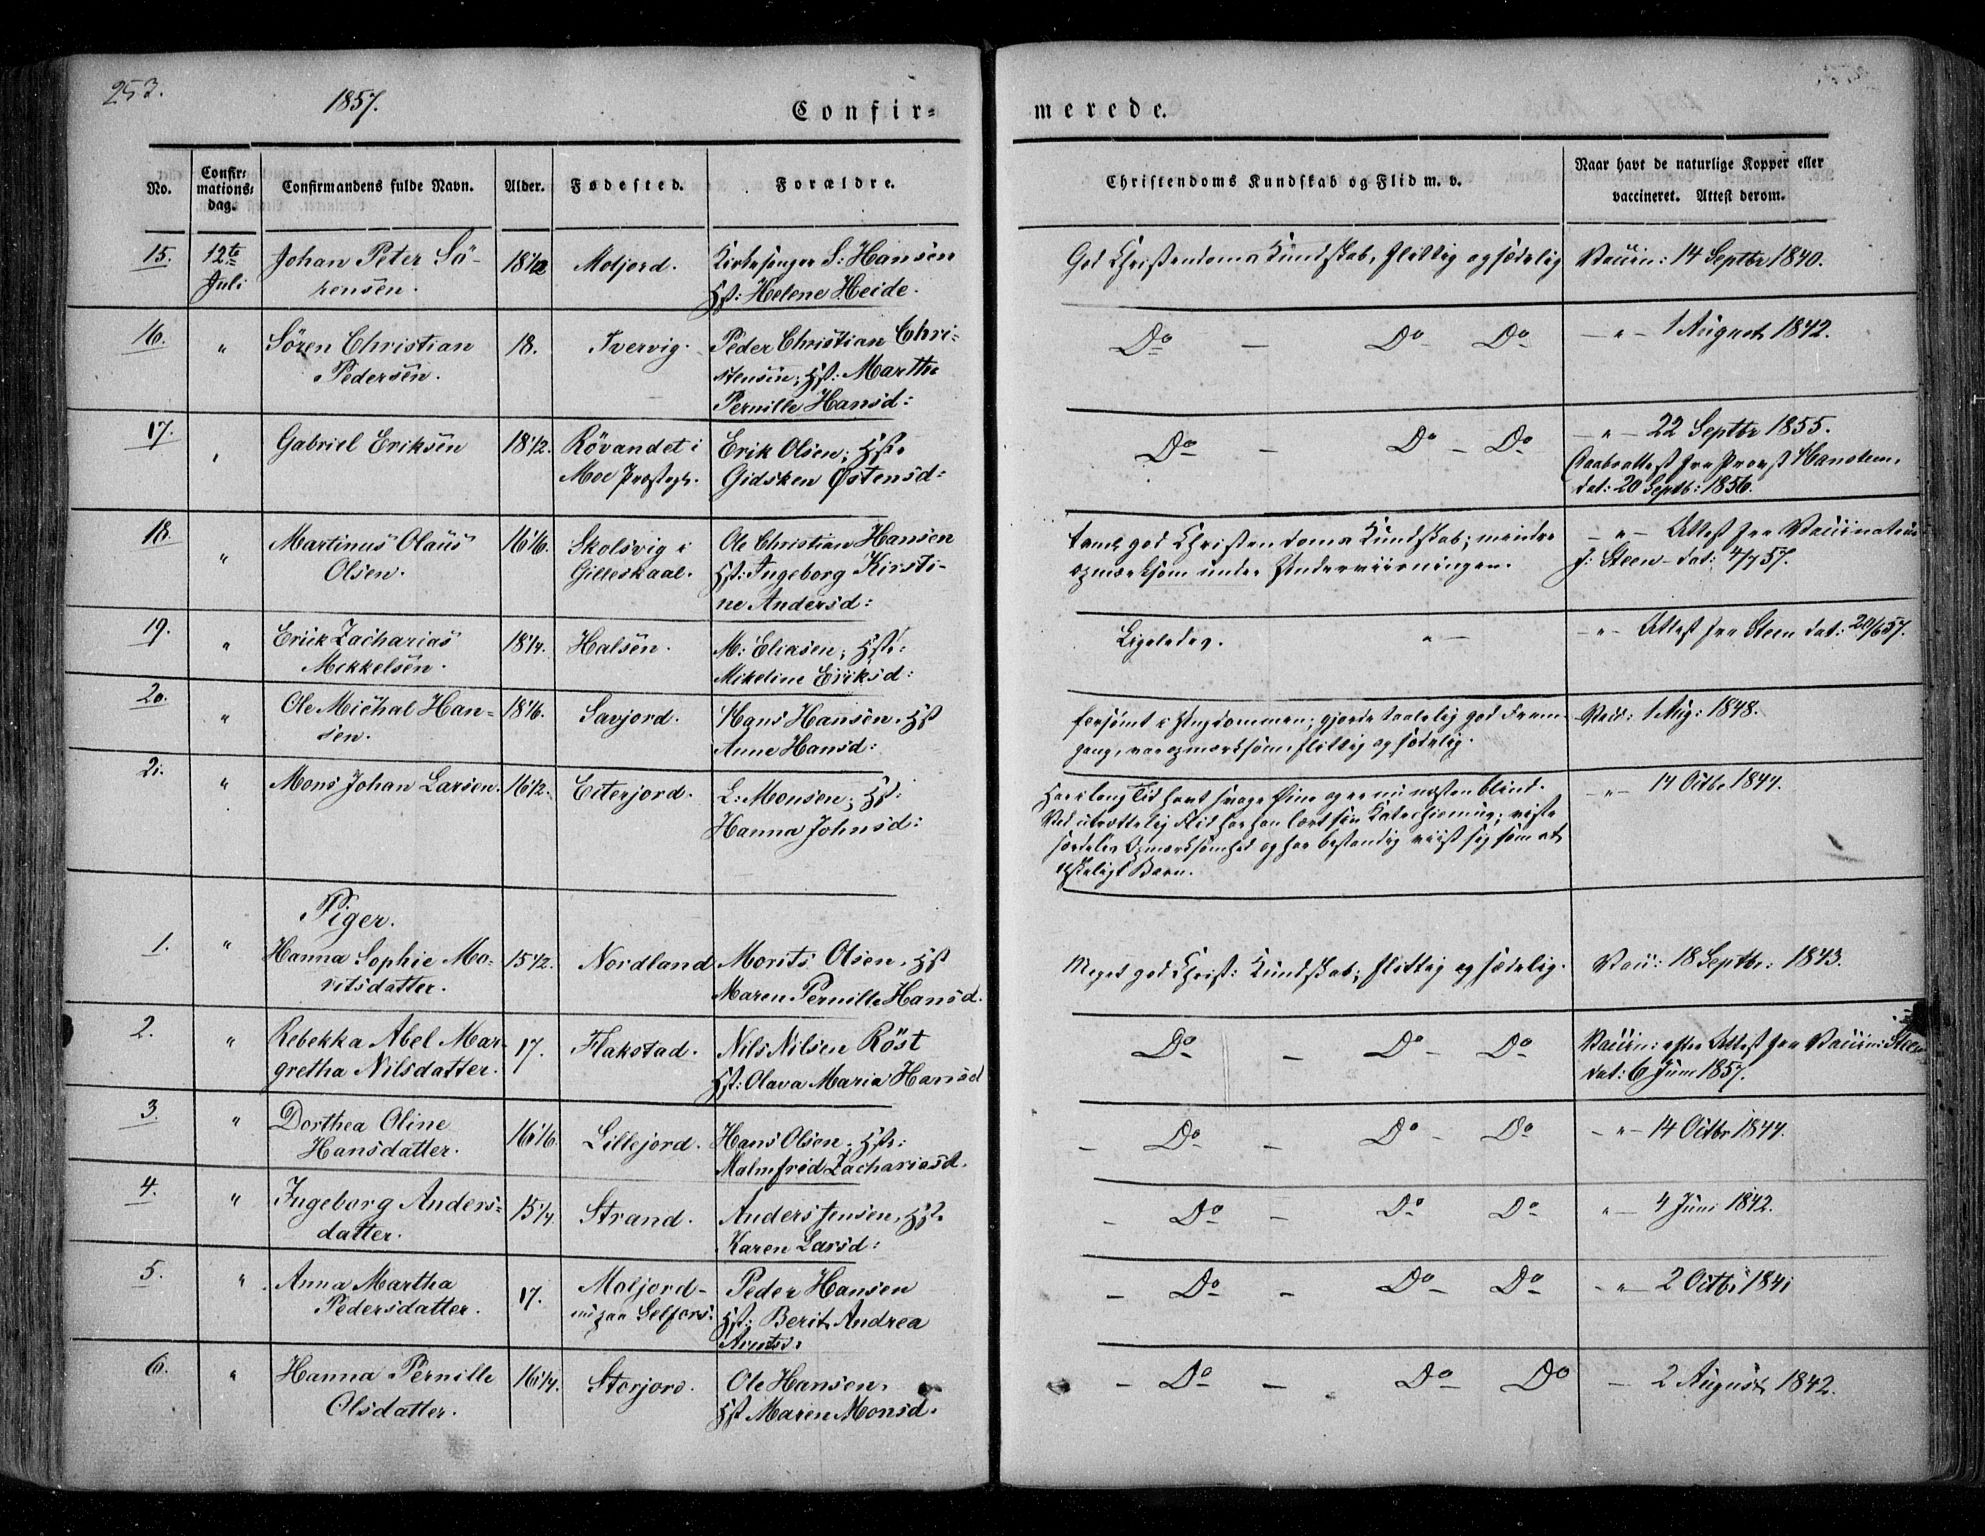 253.
1857.
Confir=
merede.
No.
Confir=
mations=
dag.
Confirmandens fulde Navn.
Alder.
Fødested.
Forældre.
Christendoms Kundskab og Flid m. v.
Naar havt de naturlige Kopper eller
vaccineret. Attest derom.
15.
12te
Juli
Johan Peter Sö-
rensen.
18 1/2
Moljord.
Kirkesanger S: Hansen
Hst: Helene Heide.
God Christendoms Kundskab, flittig og sædelig
Vaccin: 14 Septbr 1840.
16.
"
Sören Christian
Pedersen.
18.
Tvervig.
Peder Christian Chri-
stensen; Hst: Martha
Pernille Hansd:
Do - Do Do
- " - 1 August 1842.
17.
"
Gabriel Eriksen
18 1/2.
Rövandet i
Moe Præstegj.
Erik Olsen; Hst.
Gidsken Östensd:
Do - Do - Do
- " - 22 Septbr 1855.
Daabsattest fra Provst
dat: 20 Septb: 1856.
18.
"
Martinus Olaus
Olsen.
16 1/6.
Skolsvig i
Gilleskaal.
Ole Christian Hansen
Hst: Ingeborg Kirsti-
ne Andersd:
Teml god Christendoms Kundskab; mindre
opmærksom under Underviisningen.
- " - Attest fra Vaccinateur
J: Steen - dat: 4/7 57.
19.
"
Erik Zacharias
Mikkelsen.
18 1/4.
Halsen.
M: Eliasen; Hst:
Mikeline Eriksd:
Ligeledes. " -
- " - Attest fra Steen dat: 20/6 57.
20.
"
Ole Michal Han-
sen.
18 1/6.
Savjord.
Hans Hansen. Hst
Anne Hansd:
Forsömt i Ungdommen; gjorde taalelig god Frem-
gang, var opmærksom, flittig og sædelig.
Vacc: 1 Aug: 1848.
21.
"
Mons Johan Larsen.
16 1/2.
Eiterjord.
L: Monsen; Hst:
Hanna Johnsd:
Har i lang Tid havt svage Öine og er nu næsten blind.
Ved utrættelig Flid har han lært sin Katechismus; viiste
særdeles Opmærksomhed og har bestandig viist sig som et
elskeligt Barn.
- " - 14 Octbr 1844.
Piger.
1.
"
Hanna Sophie Mo-
ritsdatter.
15 1/2.
Nordland
Morits Olsen. Hst
Maren Pernille Hansd.
Meget god Christ: Kundskab; flittig og sædelig.
Vacc: 18 Septbr: 1843.
2.
"
Rebekka Abel Mar-
gretha Nilsdatter.
17.
Flakstad.
Nils Nilsen Röst
Hst: Olava Maria Hansd
Do - Do - Do
Vaccin: efter Attest fra Vaccin: Steen
dat: 6 Juni 1857.
3.
"
Dorthea Oline
Hansdatter.
16 1/6.
Lillejord.
Hans Olsen. Hst:
Malmfrid Zachariasd.
- Do - Do - Do
- " - 14 Octbr 1844.
4.
"
Ingeborg Anders-
datter.
15 1/4.
Strand.
Anders Jensen. Hst.
Karen Larsd:
- Do - Do Do
" - 4 Juni 1842.
5.
"
Anna Martha
Pedersdatter.
17.
Moljord-
nu paa Selfors.
Peder Hansen
Hst: Berit Andrea
Arntsd:
- Do - Do Do
- " - 2 Octbr 1841
6.
"
Hanna Pernille
Olsdatter.
16 1/4.
Storjord.
Ole Hansen.
Hst Maren Monsd.
- Do - Do - Do
- 2 August 1842.